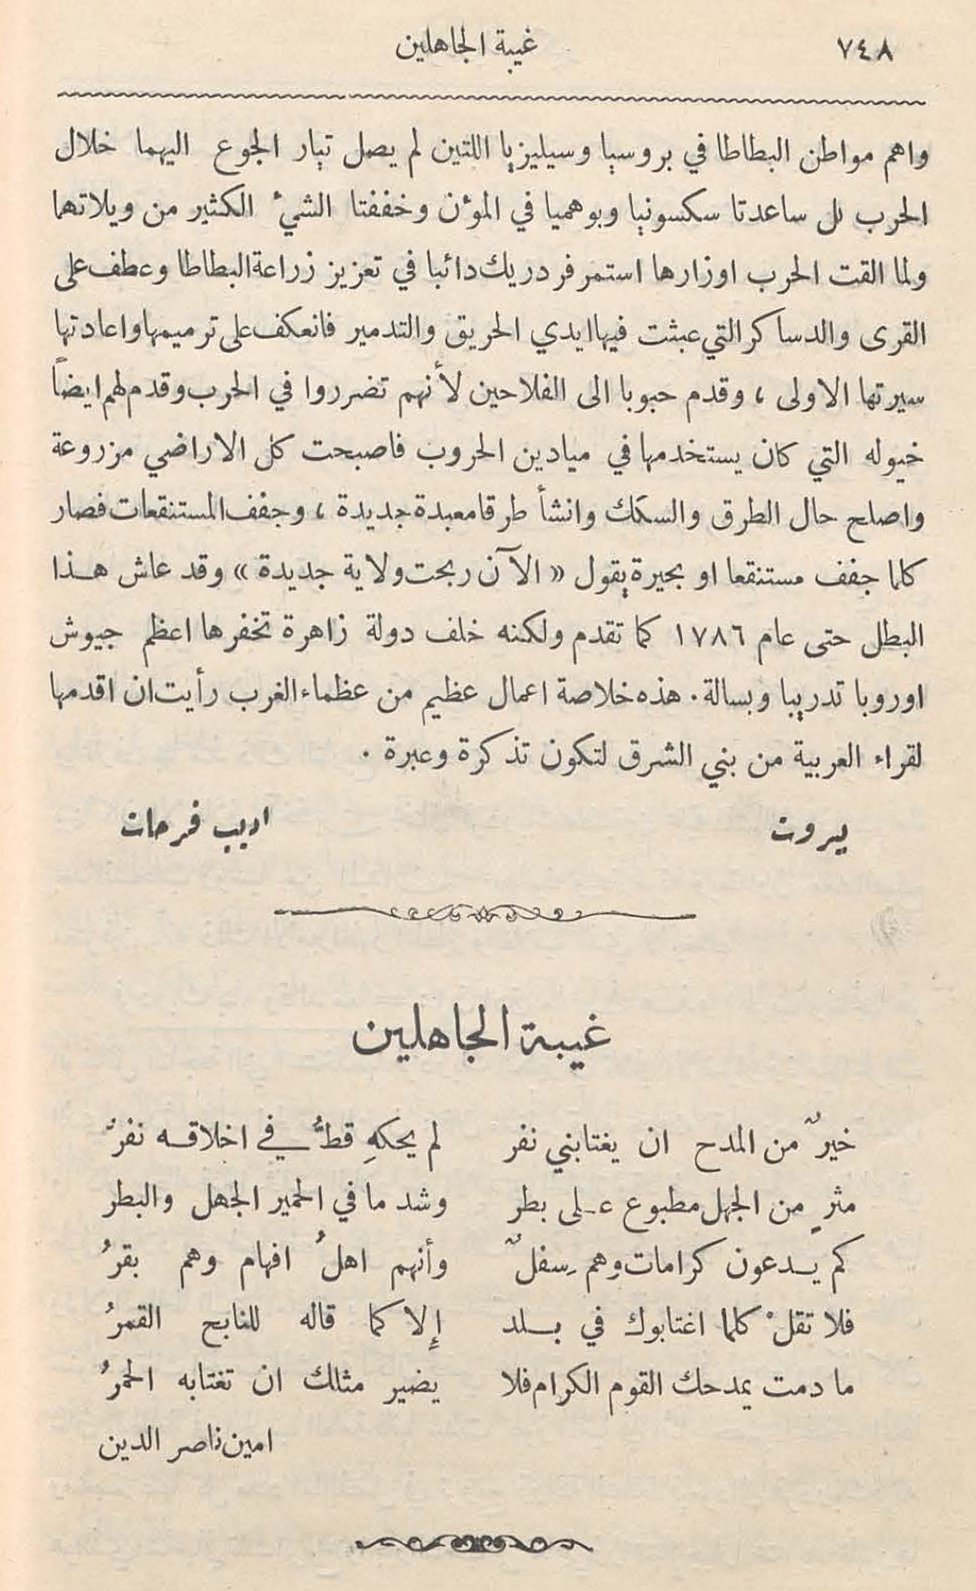 ٧٤٨
غيبة الجاهلين
واهم مواطن البطاطا في بروسيا وسيليزيا اللتين لم يصل تيار الجوع اليهما خلال
الحرب بل ساعدتا سكسونيا وبوهميا في المؤن وخففتا الشيء الكثير من ويلاتهما
ولما القت الحرب اوزارها استمر فردريك دائبا في تعزيز زراعة البطاطا وعطف على
القرى والدساكر التي عبثت فيها ايدي الحريق والتدمير فانعكف على ترميمها واعادتها
سيرتها الاولى ، وقدم حبوبا الى الفلاحين لأنهم تضرروا في الحرب وقدم لهم ايضاً
خيوله التي كان يستخدمها في ميادين الحروب فاصبحت كل الاراضي مزروعة
واصلح حال الطرق والسكك وانشأ طرقا معبدة جديدة ، وجفف المستنقعات فصار
كلما جفف مستنقعا او بحيرة يقول « الآن ربحت ولاية جديدة » وقد عاش هذا
البطل حتى عام ١٧٨٦ كما تقدم ولكنه خلف دولة زاهرة تخفرها اعظم جيوش
اوروبا تدريبا وبسالة . هذه خلاصة اعمال عظيم من عظماء الغرب رأيت ان اقدمها
لقراء العربية من بني الشرق لتكون تذكرة وعبرة .
بيروت اديب فرحات
غيبة الجاهلين
خيرٌ من المدح ان يغتابني نفر لم يحكهِ قطُّ في اخلاقه نفرُ
مثرٍ من الجهل مطبوع على بطر وشد ما في الحمير الجهل والبطر
كم يدعون كرامات وهم سفلٌ وأنهم اهلُ افهام وهم بقرُ
فلا تقلْ كلما اغتابوك في بلد إلا كما قاله للنابح القمرُ
ما دمت يمدحك القوم الكرام فلا يضير مثلك ان تغتابه الحمرُ
امين ناصر الدين